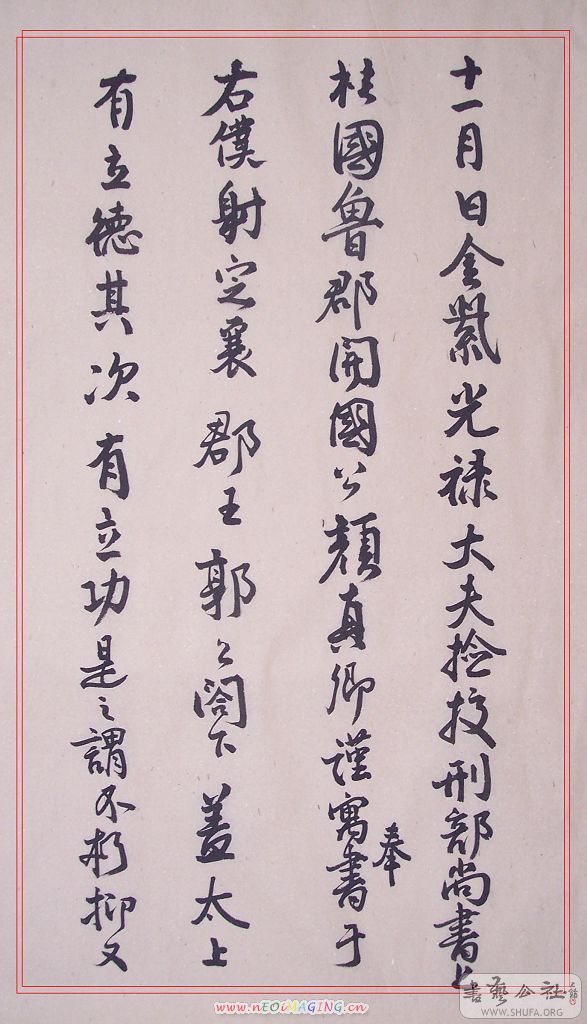 十一月日金紫光禄大夫捡挍刑部尚書上
柱國魯郡開國公顔真卿謹寓書于
奉
右僕射定襄郡王郭公閤下蓋太上
有立德其次有立功是之謂不朽抑又
書藝公社
WWW.SHUFA.ORG
www.nEOiMAGING.cn